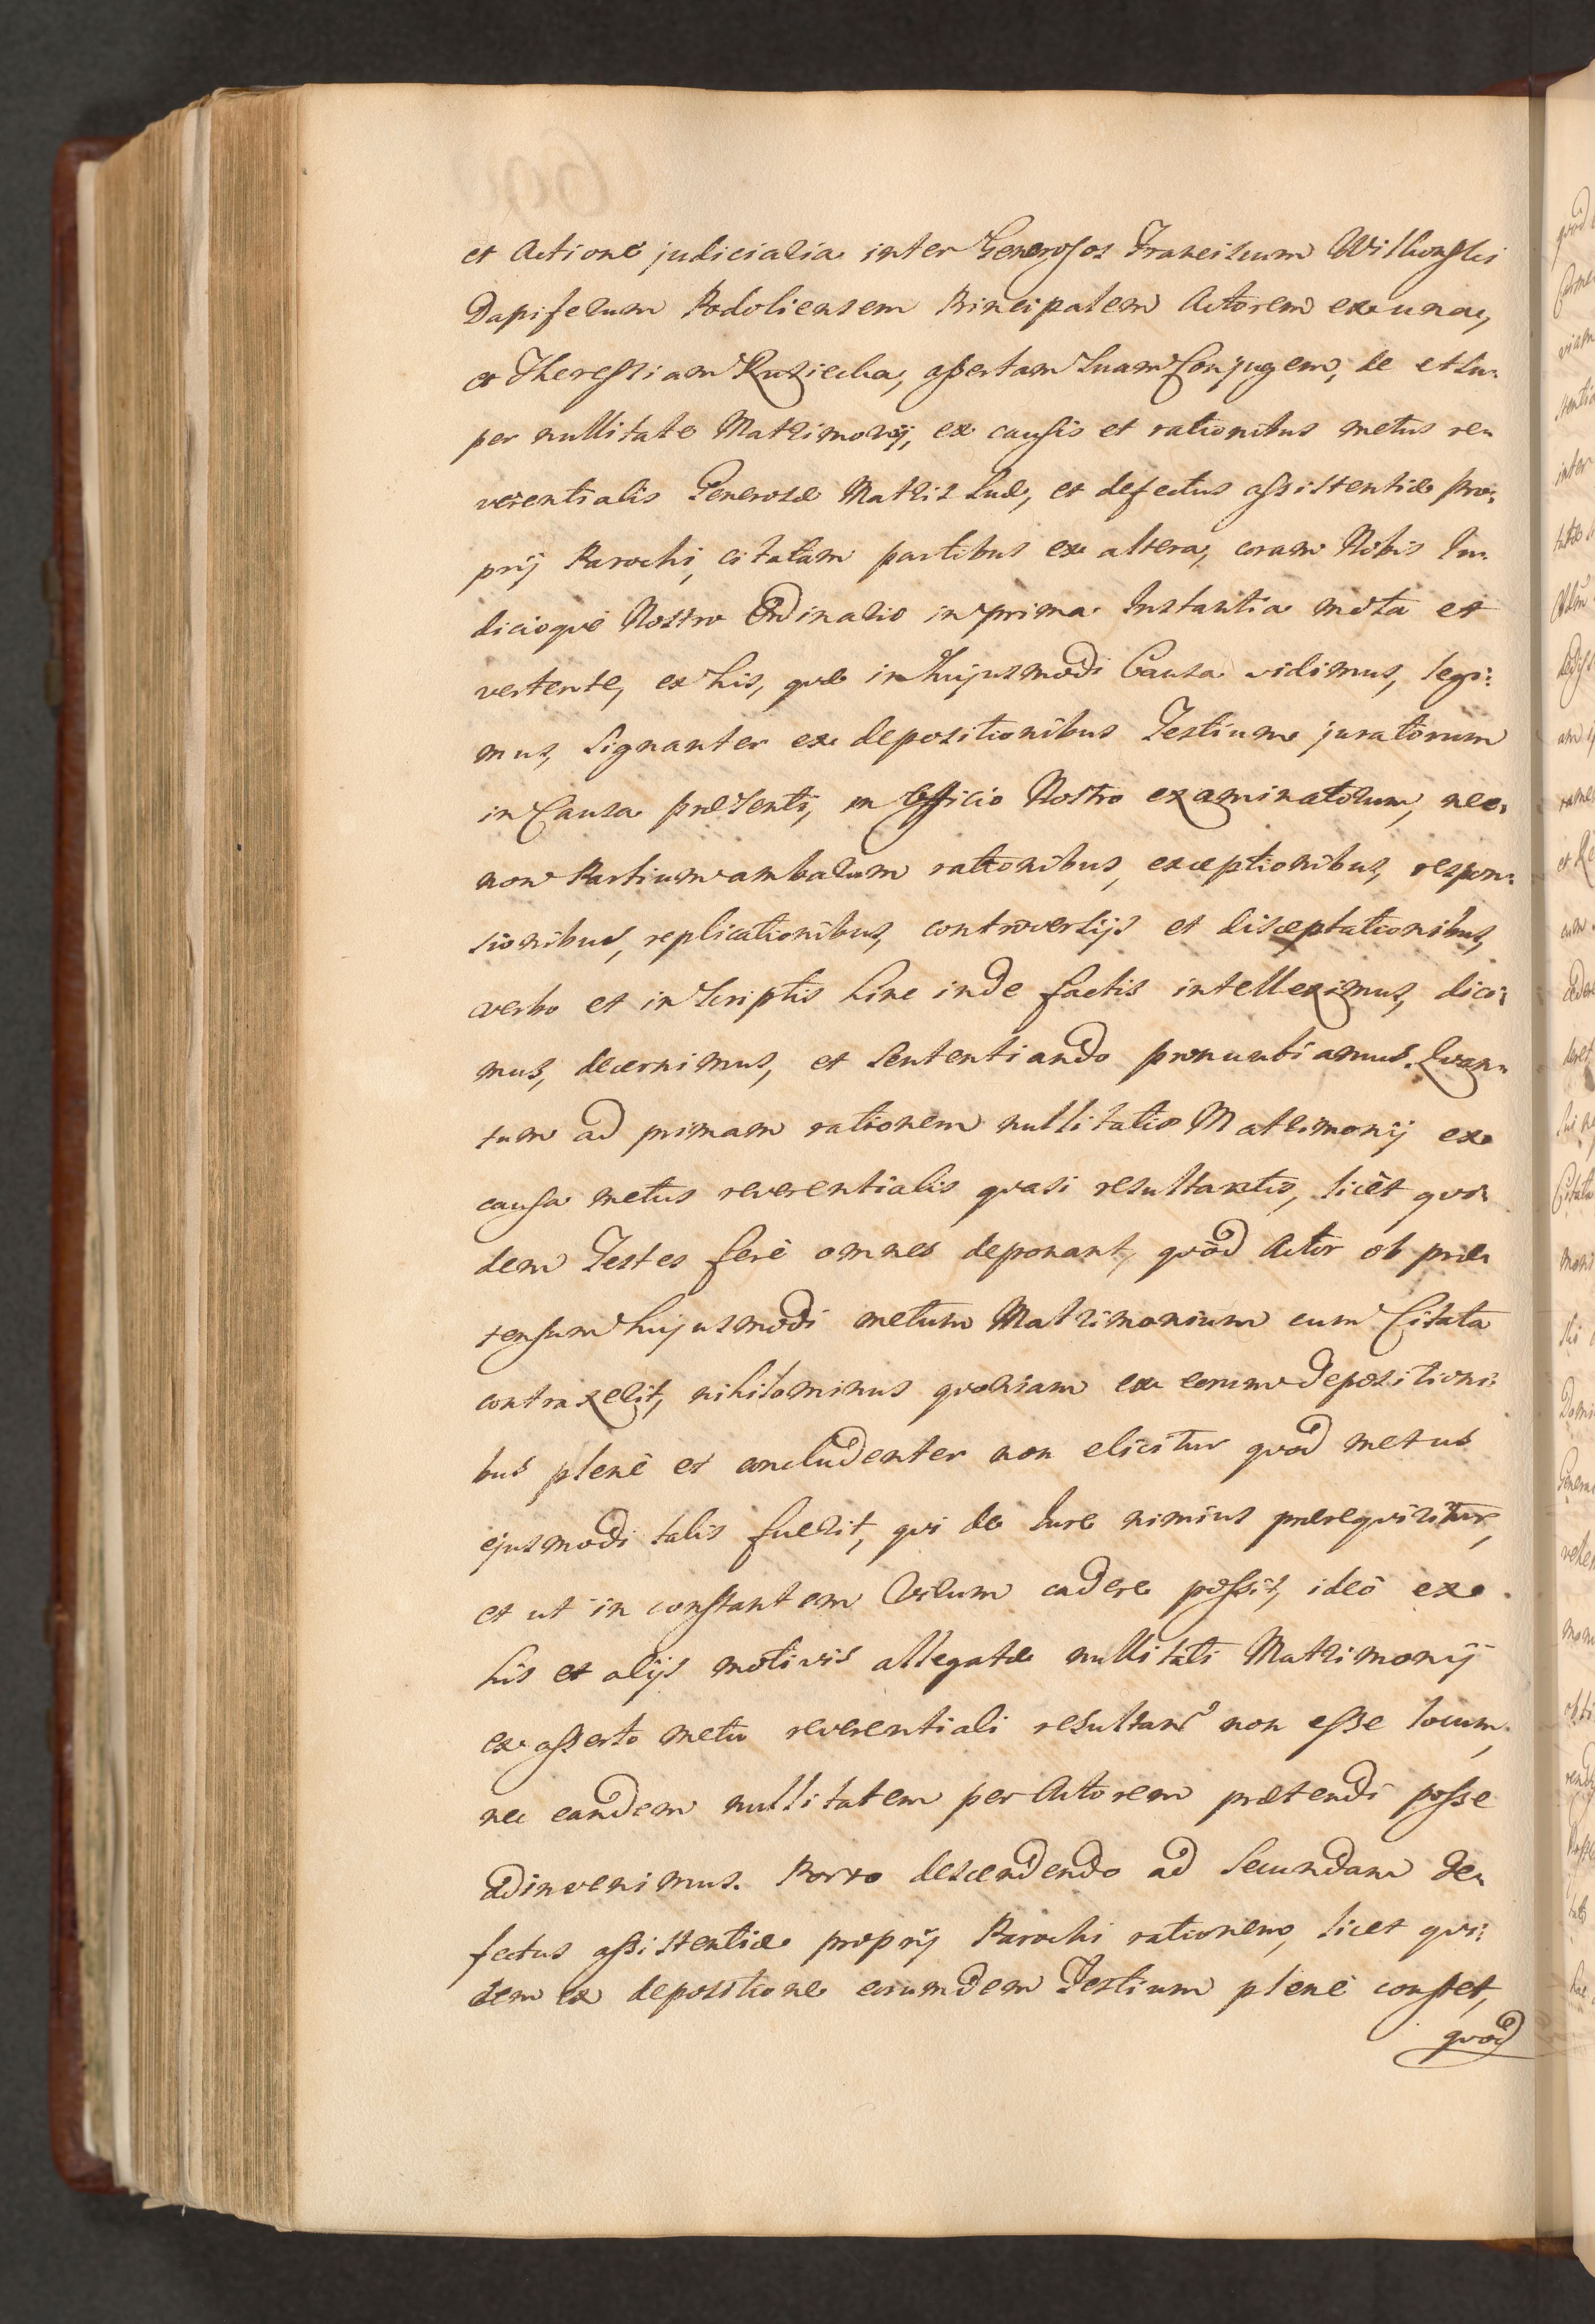 et Actione judicialia inter Generosos Franciscum Wilkonski
Dapiferum Podoliensem Principalem Actorem ex una,
et Theressiam Ruziecka, assertam suam Conjugem, de et su:
per nullitate Matrimonij, ex causis et rationibus metus re:
verentialis Generosæ Matris suæ, et defectus assistentiæ pro:
prij Parochi, citatam partibus ex altera, coram Nobis Iu:
dicioque Nostro Ordinario in prima Instantia mota et
vertente, ex his, quæ in hujusmodi Causa vidimus, legi:
mus, signanter ex depositionibus Testium juratorum
in Causa præsenti, in Officio Nostro examinatorum, nec:
non Partium ambarum rationibus, exceptionibus, respon:
sionibus, replicationibus, controversijs et disceptationibus,
verbo et in scriptis hinc inde factis intelleximus, dici:
mus, decernimus, et sententiando pronuntiamus. Quan:
tum ad primam rationem nullitatis Matrimonij ex
causa metus reverentialis quasi resultantis, licèt qui:
dem Testes ferè omnes deponant, quòd Actor ob præ:
tensum hujusmodi metum Matrimonium cum Citata
contraxerit, nihilominus quoniam ex eorum depositioni:
bus plenè et concludenter non elicitur quòd metus
ejusmodi talis fuerit, qui de Iure nimius prærequiritur,
et ut in constantem Virum cadere possit, ideò ex
his et alijs motivis allegatæ nullitati Matrimonij
ex asserto metu reverentiali resultan non esse locum,
nec eandem nullitatem per Actorem prætendi posse
adinvenimus. Porro descendendo ad secundam de:
fectus assistentiæ proprij Parochi rationem, licet qui:
dem ex depositione eorumdem Testium plenè constet,
quòd